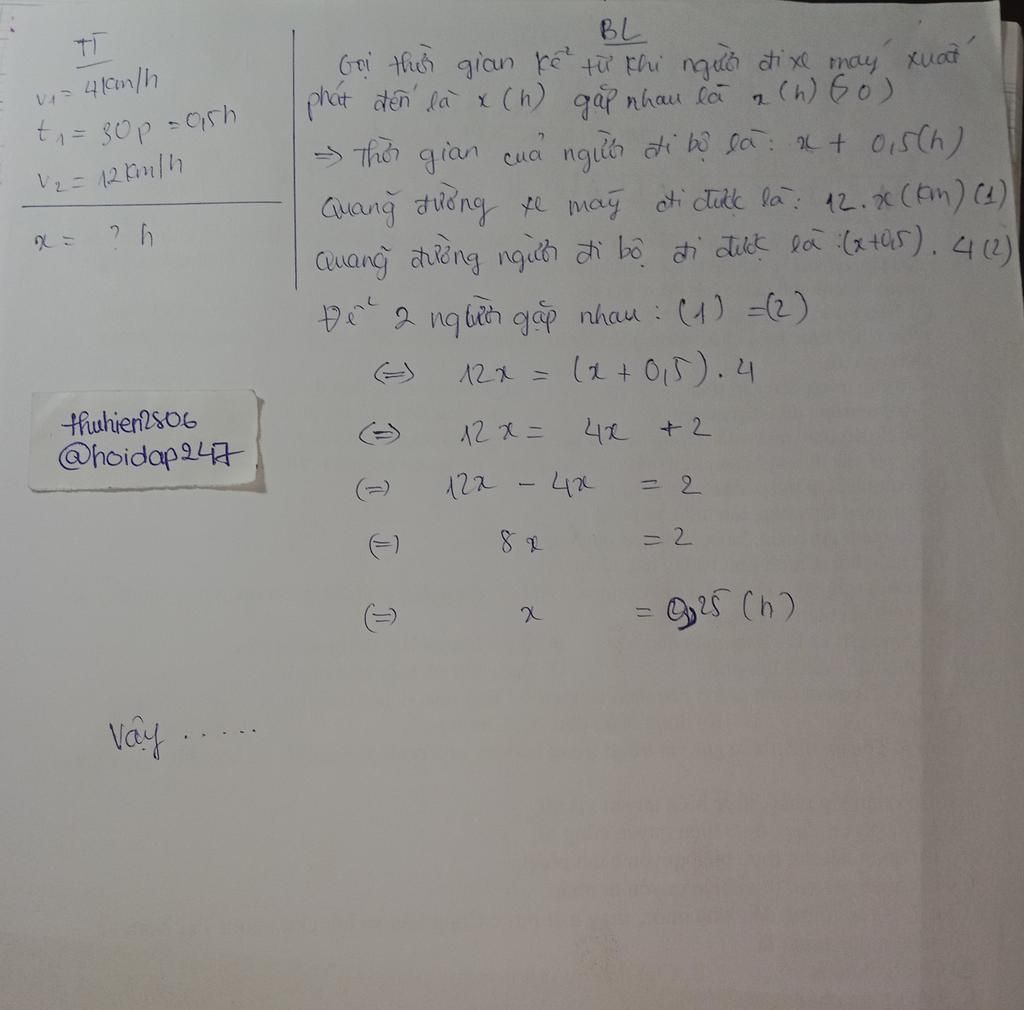 TT
v1 = 4km/h
t1 = 30p = 0,5h
v2 = 12km/h
x = ? h
BL
Gọi thời gian kể từ khi người đi xe máy xuất
phát đến là x (h) gặp nhau là x (h) (>0)
=> Thời gian của người đi bộ là: x + 0,5(h)
Quãng đường xe máy đi được là: 12.x(km) (1)
Quãng đường người đi bộ đi được là :(x+0,5).4(2)
Để 2 người gặp nhau : (1) =(2)
(=) 12x = (x + 0,5).4
(=) 12x = 4x + 2
(=) 12x - 4x = 2
(=) 8x = 2
(=) x = 0,25 (h)
thuhien2806
@hoidap247
Vậy ......